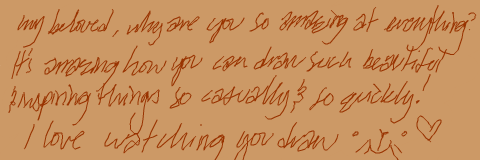 my beloved, why are you so amazing at everything?
It's amazing how you can draw such beautiful
& inspiring things so casually & so quickly!
I love watching you draw ♡